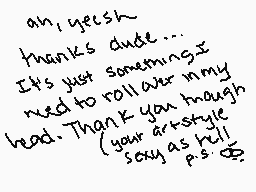 ah, yeesh
thanks dude...
It's just something I
need to roll over in my
head. Thank you though
(your artstyle
sexy as hell
p.s.